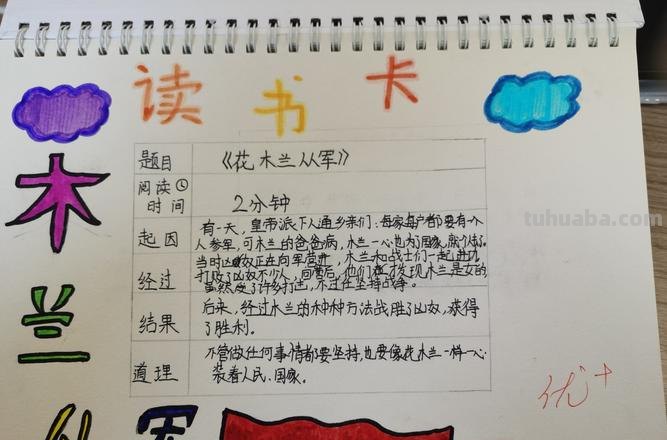 读书卡
题目 《花木兰从军》
阅读时间 2分钟
起因 有一天，皇帝派下人通乡亲们：每家每户者都要有一个
人参军，可木兰的爸爸病，木兰一心也为了国家，
经过 当时匈奴正在向军营进，木兰和战士们一起进攻
打败了凶奴不少人，回营后，他们都才发现木兰是女的，
虽然受了许多打击，不过在坚持战争。
结果 后来，经过木兰的种种方法战胜了凶奴，获得
了胜利。
道理 不管做任何事情都要坚持，也要像花木兰一样一心
装着人民、国家。
木兰从军
优+
tuhuaba.com